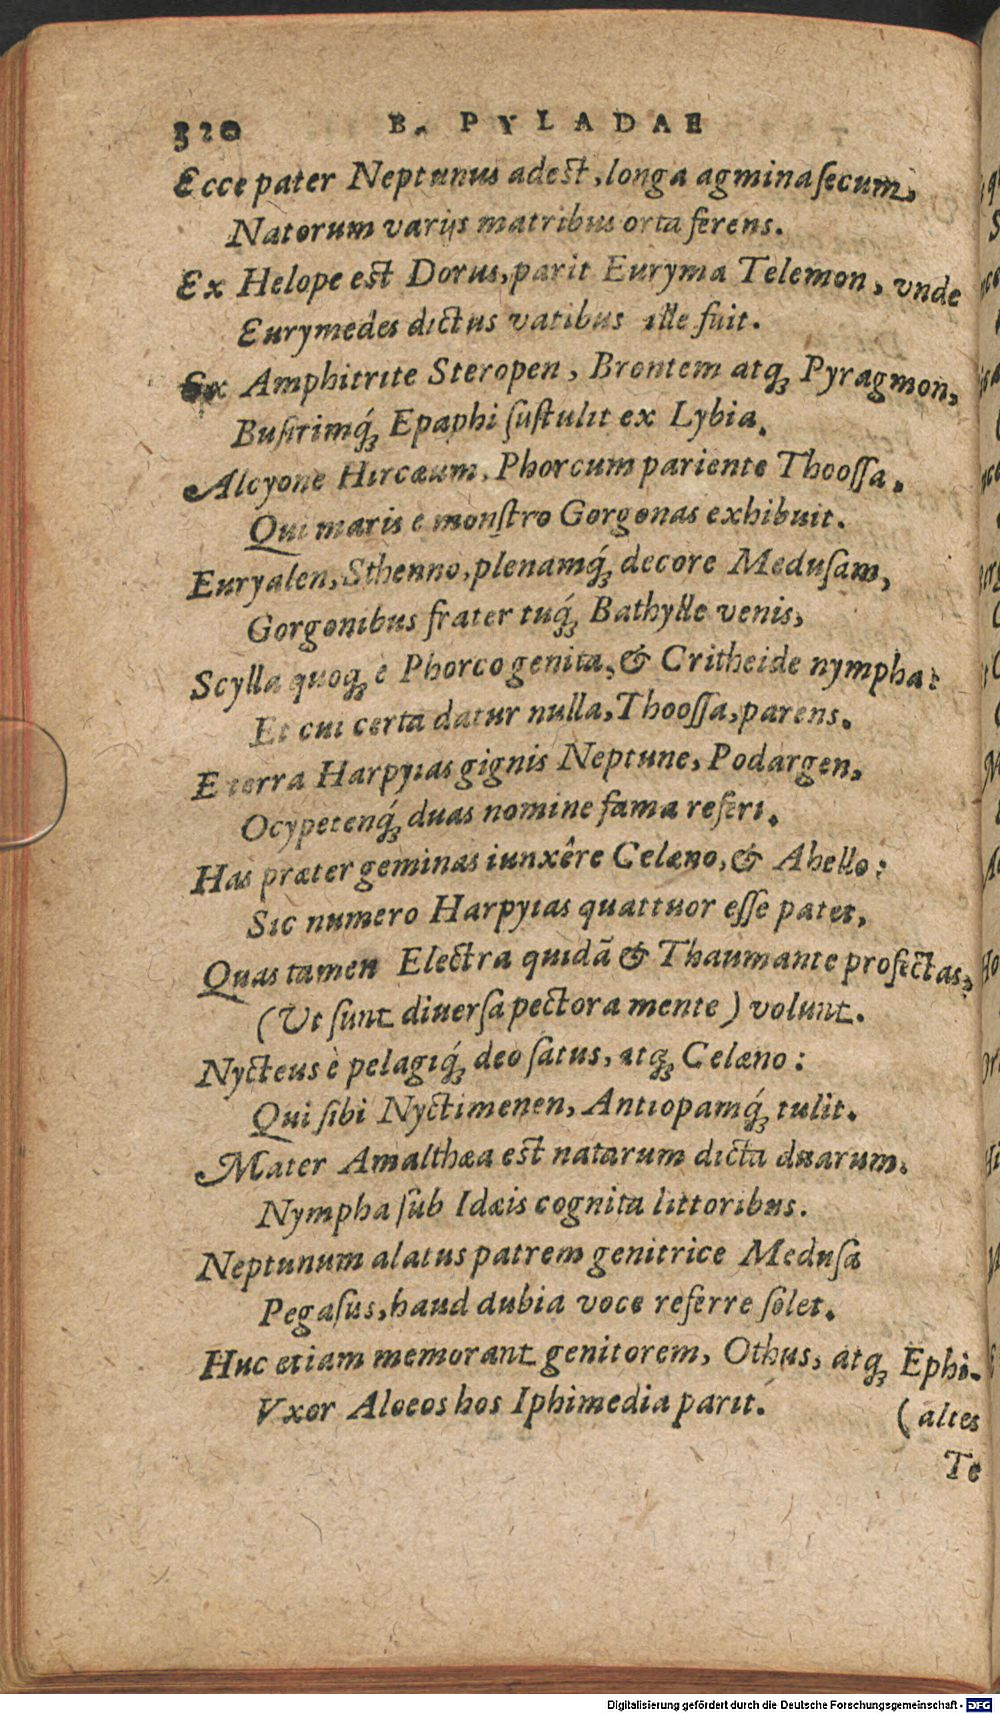 320 B. PYLADAE
Ecce pater Neptunus adest, longa agmina ſecum,
Natorum varijs matribus orta ferens.
Ex Helope est Dorus, parit Euryma Telemon, vnde
Eurymedes dictus vatibus ille fuit.
Ex Amphitrite Steropen, Brontem atq; Pyragmon,
Buſirimq́; Epaphi ſuſtulit ex Lybia.
Alcyone Hircæum, Phorcum pariente Thooſſa.
Qui maris e monſtro Gorgonas exhibuit.
Euryalen, Sthenno, plenamq́; decore Meduſam,
Gorgonibus frater tuq́; Bathylle venis,
Scylla quoq; e Phorco genita, & Critheide nympha:
Et cui certa datur nulla, Thooſſa, parens.
E terra Harpyias gignis Neptune, Podargen,
Ocypetenq́; duas nomine fama referi.
Has præter geminas iunxêre Celæno, & Ahello:
Sic numero Harpyias quattuor eſſe patet,
Quas tamen Electra quidã & Thaumante profectas,
(Ut ſunt diuerſa pectora mente) volunt.
Nycteus è pelagiq́; deo ſatus, atq; Celæno:
Qui ſibi Nyctimenen, Antiopamq́; tulit.
Mater Amalthæa est natarum dicta duarum.
Nympha ſub Idæis cognita littoribus.
Neptunum alatus patrem genitrice Meduſa
Pegaſus, haud dubia voce referre ſolet.
Huc etiam memorant genitorem, Othus, atq; Ephi-
Vxor Aloeos hos Iphimedia parit. (altes
Te
Digitalisierung gefördert durch die Deutsche Forschungsgemeinschaft - DFG